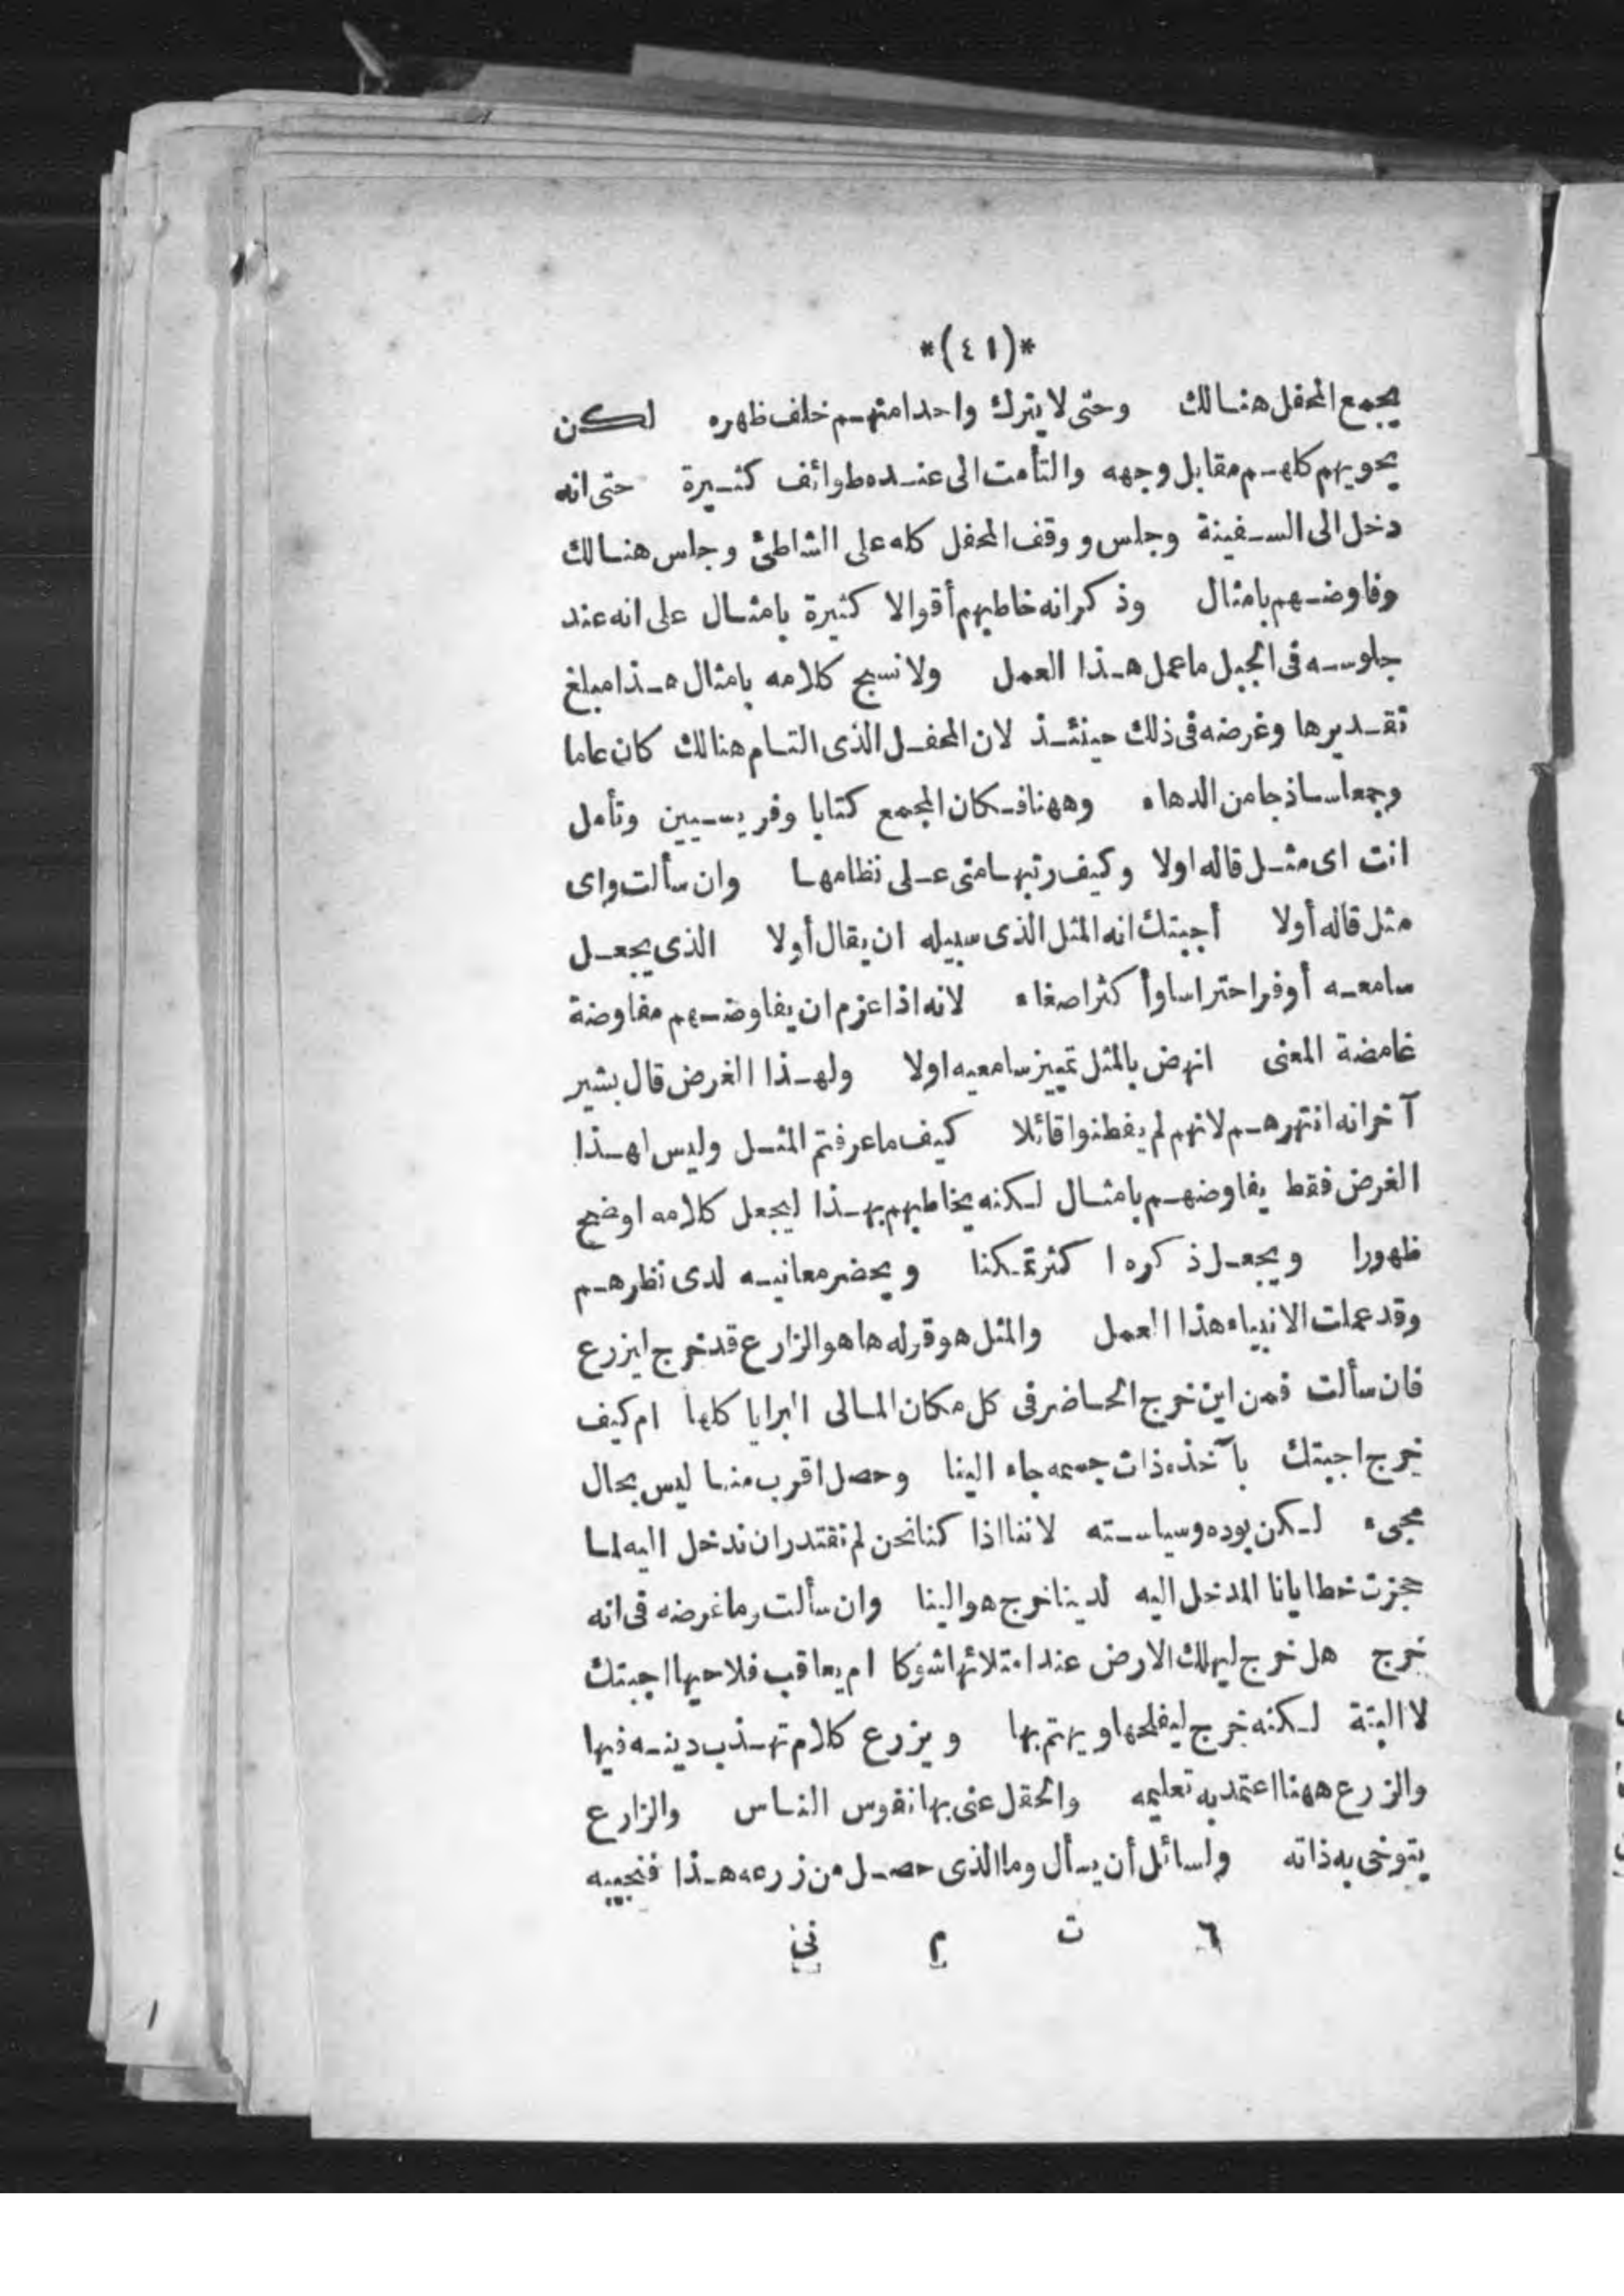 *(٤١)*
يجمع المحفل هنالك وحتى لا يترك واحدا منهم خلف ظهره لكن
يحويهم كلهم مقابل وجهه والتأمت الى عنده طوائف كثيرة حتى انه
دخل الى السفينة وجلس ووقف المحفل كله على الشاطئ وجلس هنالك
وفاوضهم بامثال وذكر انه خاطبهم أقوالا كثيرة بامثال على انه عند
جلوسه فى الجبل ما عمل هذا العمل ولا نسج كلامه بامثال هذا مبلغ
تقديرها وغرضه فى ذلك حينئذ لان المحفل الذى التام هنالك كان عاما
وجمعا ساذجا من الدهاء وههنا فكان المجمع كتابا وفريسيين وتأمل
انت اى مثل قاله اولا وكيف رتبها متى على نظامها وان سألت واى
مثل قاله أولا أجبتك انه المثل الذى سبيله ان يقال أولا الذى يجعل
سامعه أوفر احتراسا وأكثر اصغاء لانه اذا عزم ان يفاوضهم مفاوضة
غامضة المعنى انهض بالمثل تمييز سامعيه اولا ولهذا الغرض قال بشير
آخر انه انتهرهم لانهم لم يفطنوا قائلا كيف ما عرفتم المثل وليس لهذا
الغرض فقط يفاوضهم بامثال لكنه يخاطبهم بهذا ليجعل كلامه اوضح
ظهورا ويجعل ذكره اكثر تمكنا ويحضر معانيه لدى نظرهم
وقد عملت الانبياء هذا العمل والمثل هو قوله ها هو الزارع قد خرج ليزرع
فان سألت فمن اين خرج الحاضر فى كل مكان المالى البرايا كلها ام كيف
خرج اجبتك بآخذه ذات جسمه جاء الينا وحصل اقرب منا ليس بحال
مجىء لكن بوده وسياسته لاننا اذا كنا نحن لم نقتدر ان ندخل اليه لما
حجزت خطايانا المدخل اليه لدينا خرج هو الينا وان سألت وما غرضه فى انه
خرج هل خرج ليهلك الارض عند امتلائها شوكا ام يعاقب فلاحيها اجبتك
لا البتة لكنه خرج ليفلحها ويهتم بها ويزرع كلام تهذيب دينه فيها
والزرع ههنا اعتمد به تعليمه والحقل عنى بها نفوس الناس والزارع
يتوخى به ذاته ولسائل أن يسأل وما الذى حصل من زرعه هذا فنجيبه
٦ ت م نى